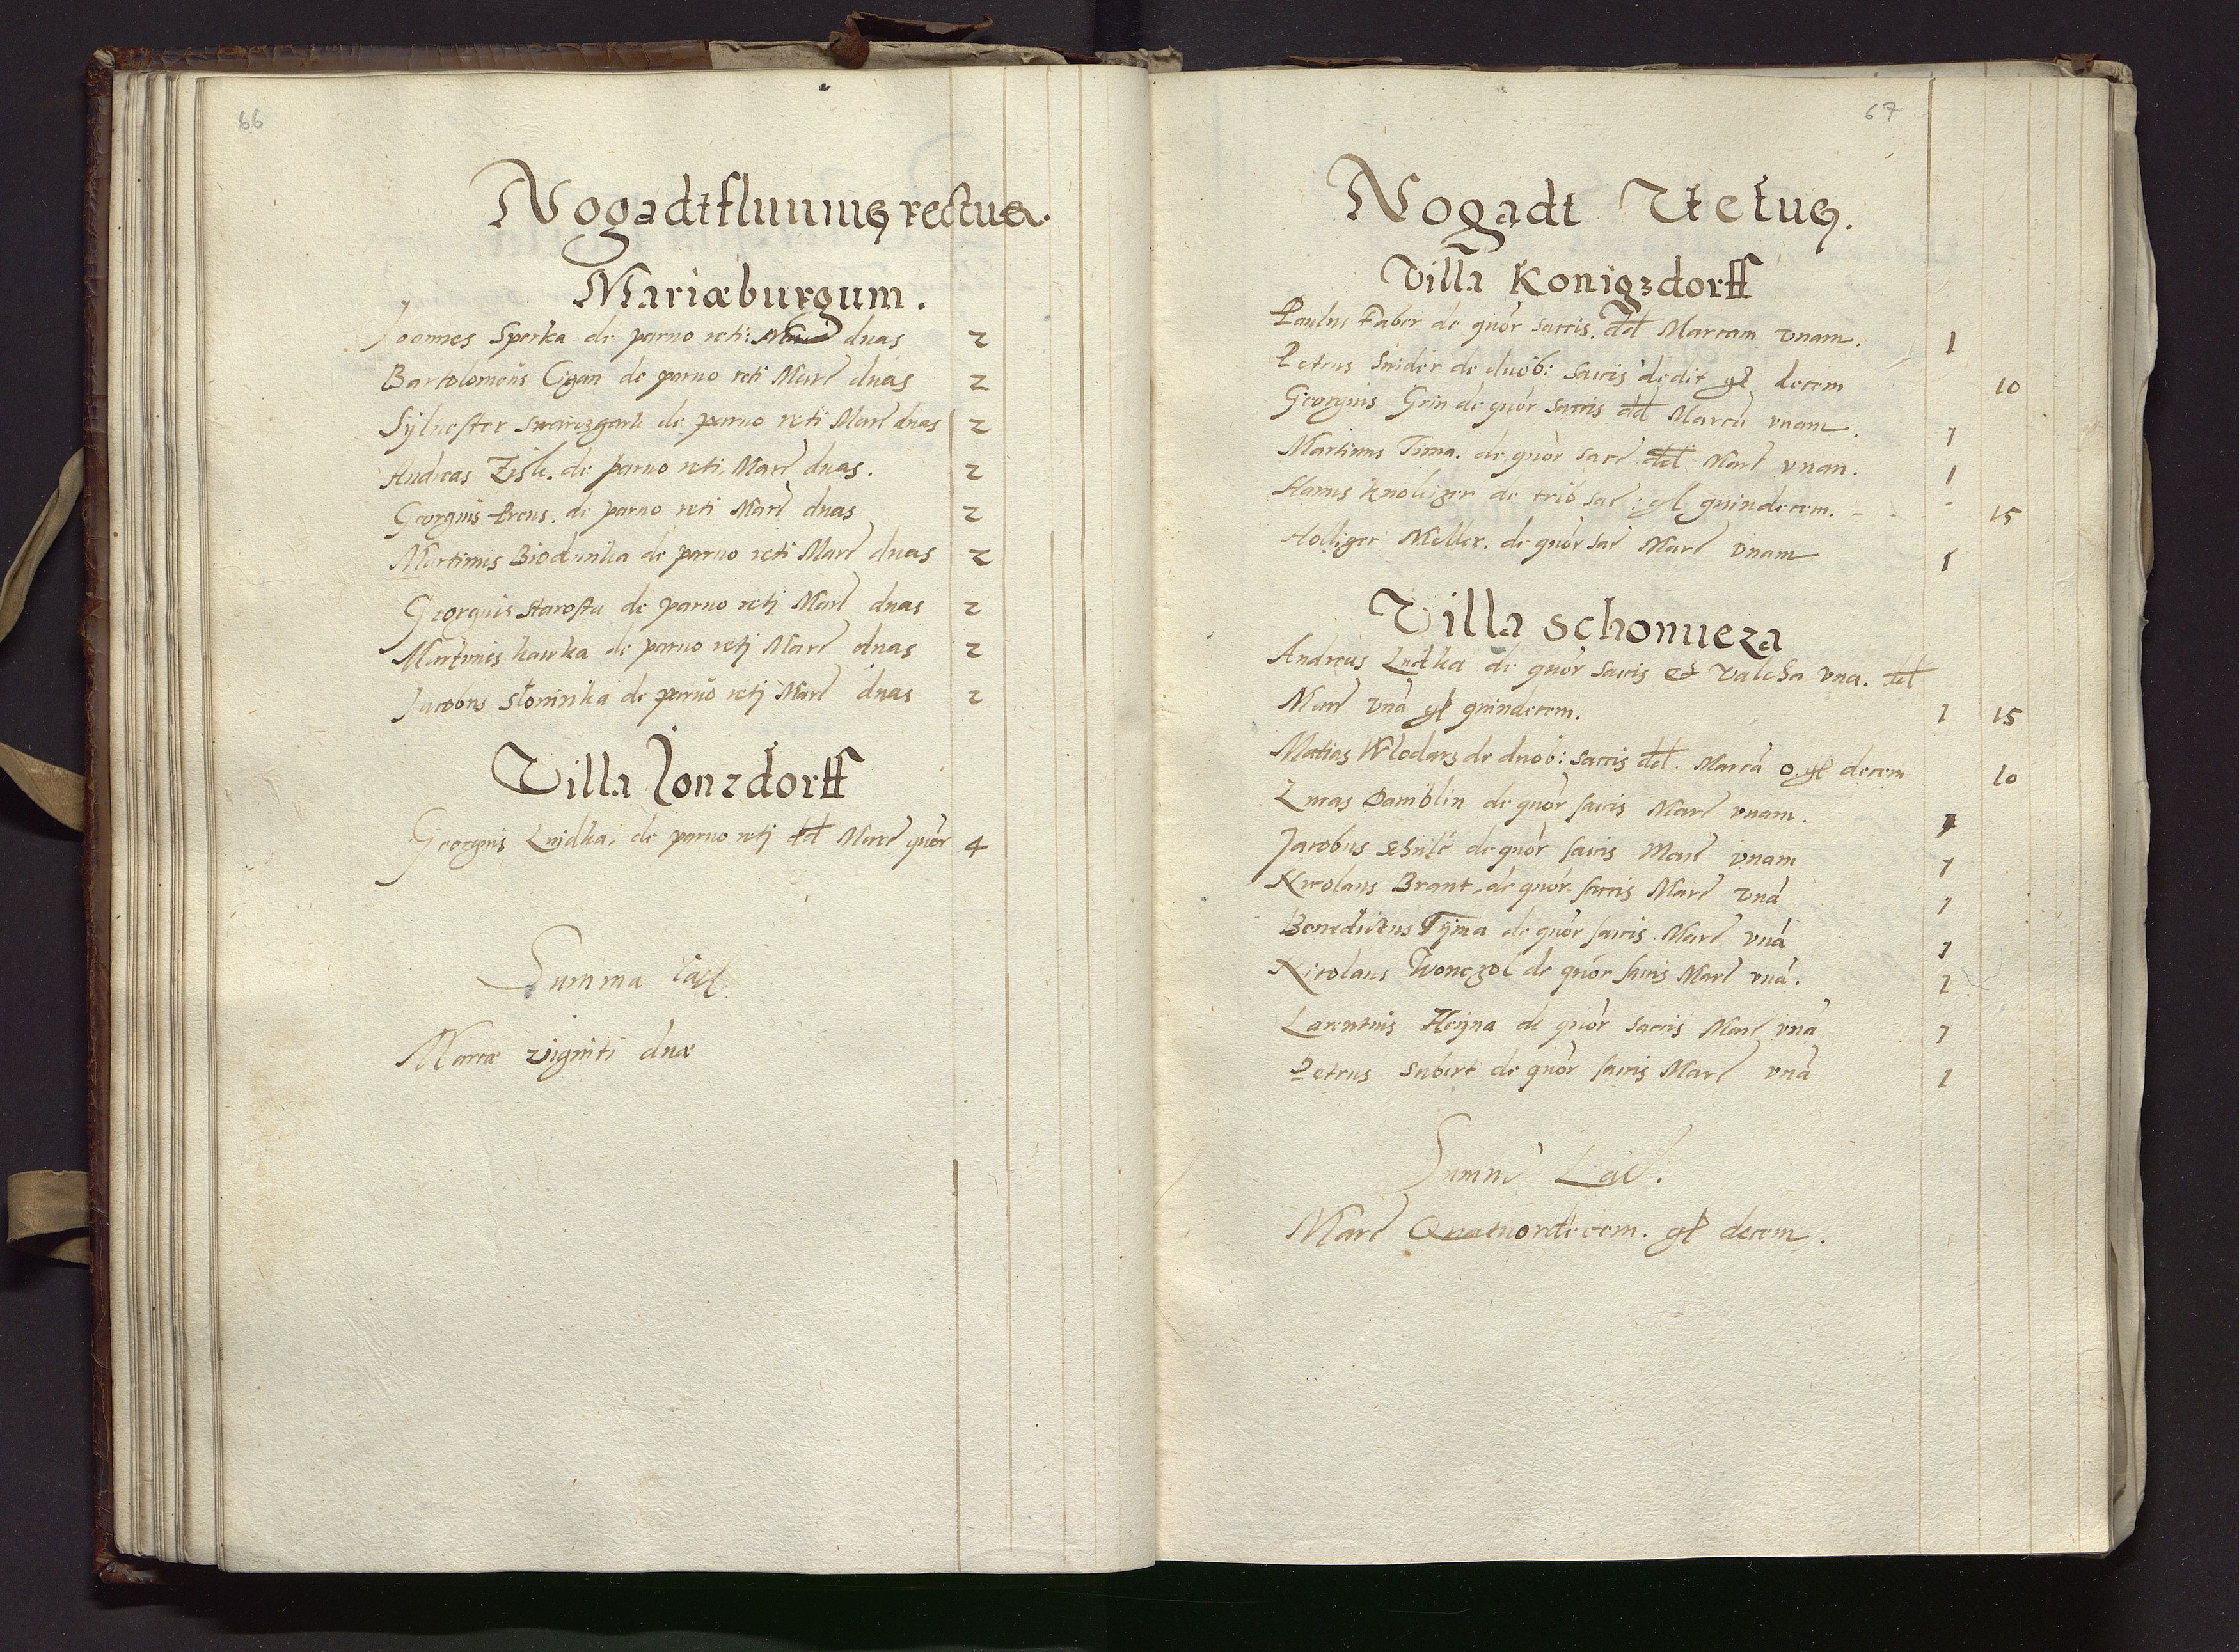 66
Nogadtfluuius rectus.
Mariæburgum.
Joannes Sperka de paruo reti: duas 2
Bartolomeus Cigan de paruo reti Marc duas 2
Syluester Swarczgark de paruo reti Marc duas 2
Andreas Zisk. de paruo reti. Marc duas. 2
Georgius Preus. de paruo reti Marc duas 2
Martinus Biodunka de paruo reti Marc duas 2
Georgius Starosta de paruo retj Marc duas 2
Martinus kawka de paruo retj Marc duas 2
Jacobus Słominka de paruo retj Marc duas 2
Villa Jonzdorff
Georgius Luidka. de paruo retj dd Marc quor 4
Summa
Marcæ viginti duæ
67
Nogadt Vetus.
Villa Konigzdorff
Paulus Faber de quor saccis. dd Marcam vnam. 1
Petrus Snider de duob: saccis dedit gł decem 10
Georgius Grin de quor saccis dd Marcā vnam. 1
Martinus Tima. de quor sacc dd Marc vnan. 1
Hanus knoleizer de trib sac: gł quindecem. - - - 15
Holliger Meller. de quor sac Marc vnam 1
Villa schonuieza
Andreas Ludka de quor saccis et valcha vna. dd
Marc vnā gł quindecem. 1 15
Matias Wlodarz de duob: saccis dd. Marcā 0. gł decem 10
Lucas Damblin de quor saccis Marc vnam. 1
Jacobus Schulc de quor saccis Marc vnam 1
Nicolaus Brant. de quor. saccis Marc vnā 1
Benedictus Tyma de quor saccis Marc vnā 1
Nicolaus Wonczol de quor saccis Marc vnā. 1
Larentius Heyna de quor saccis Marc vnā 1
Petrus Subert de quor saccis Marc vnā 1
Summ Lac.
Marc Quatuordecem. gł decem.